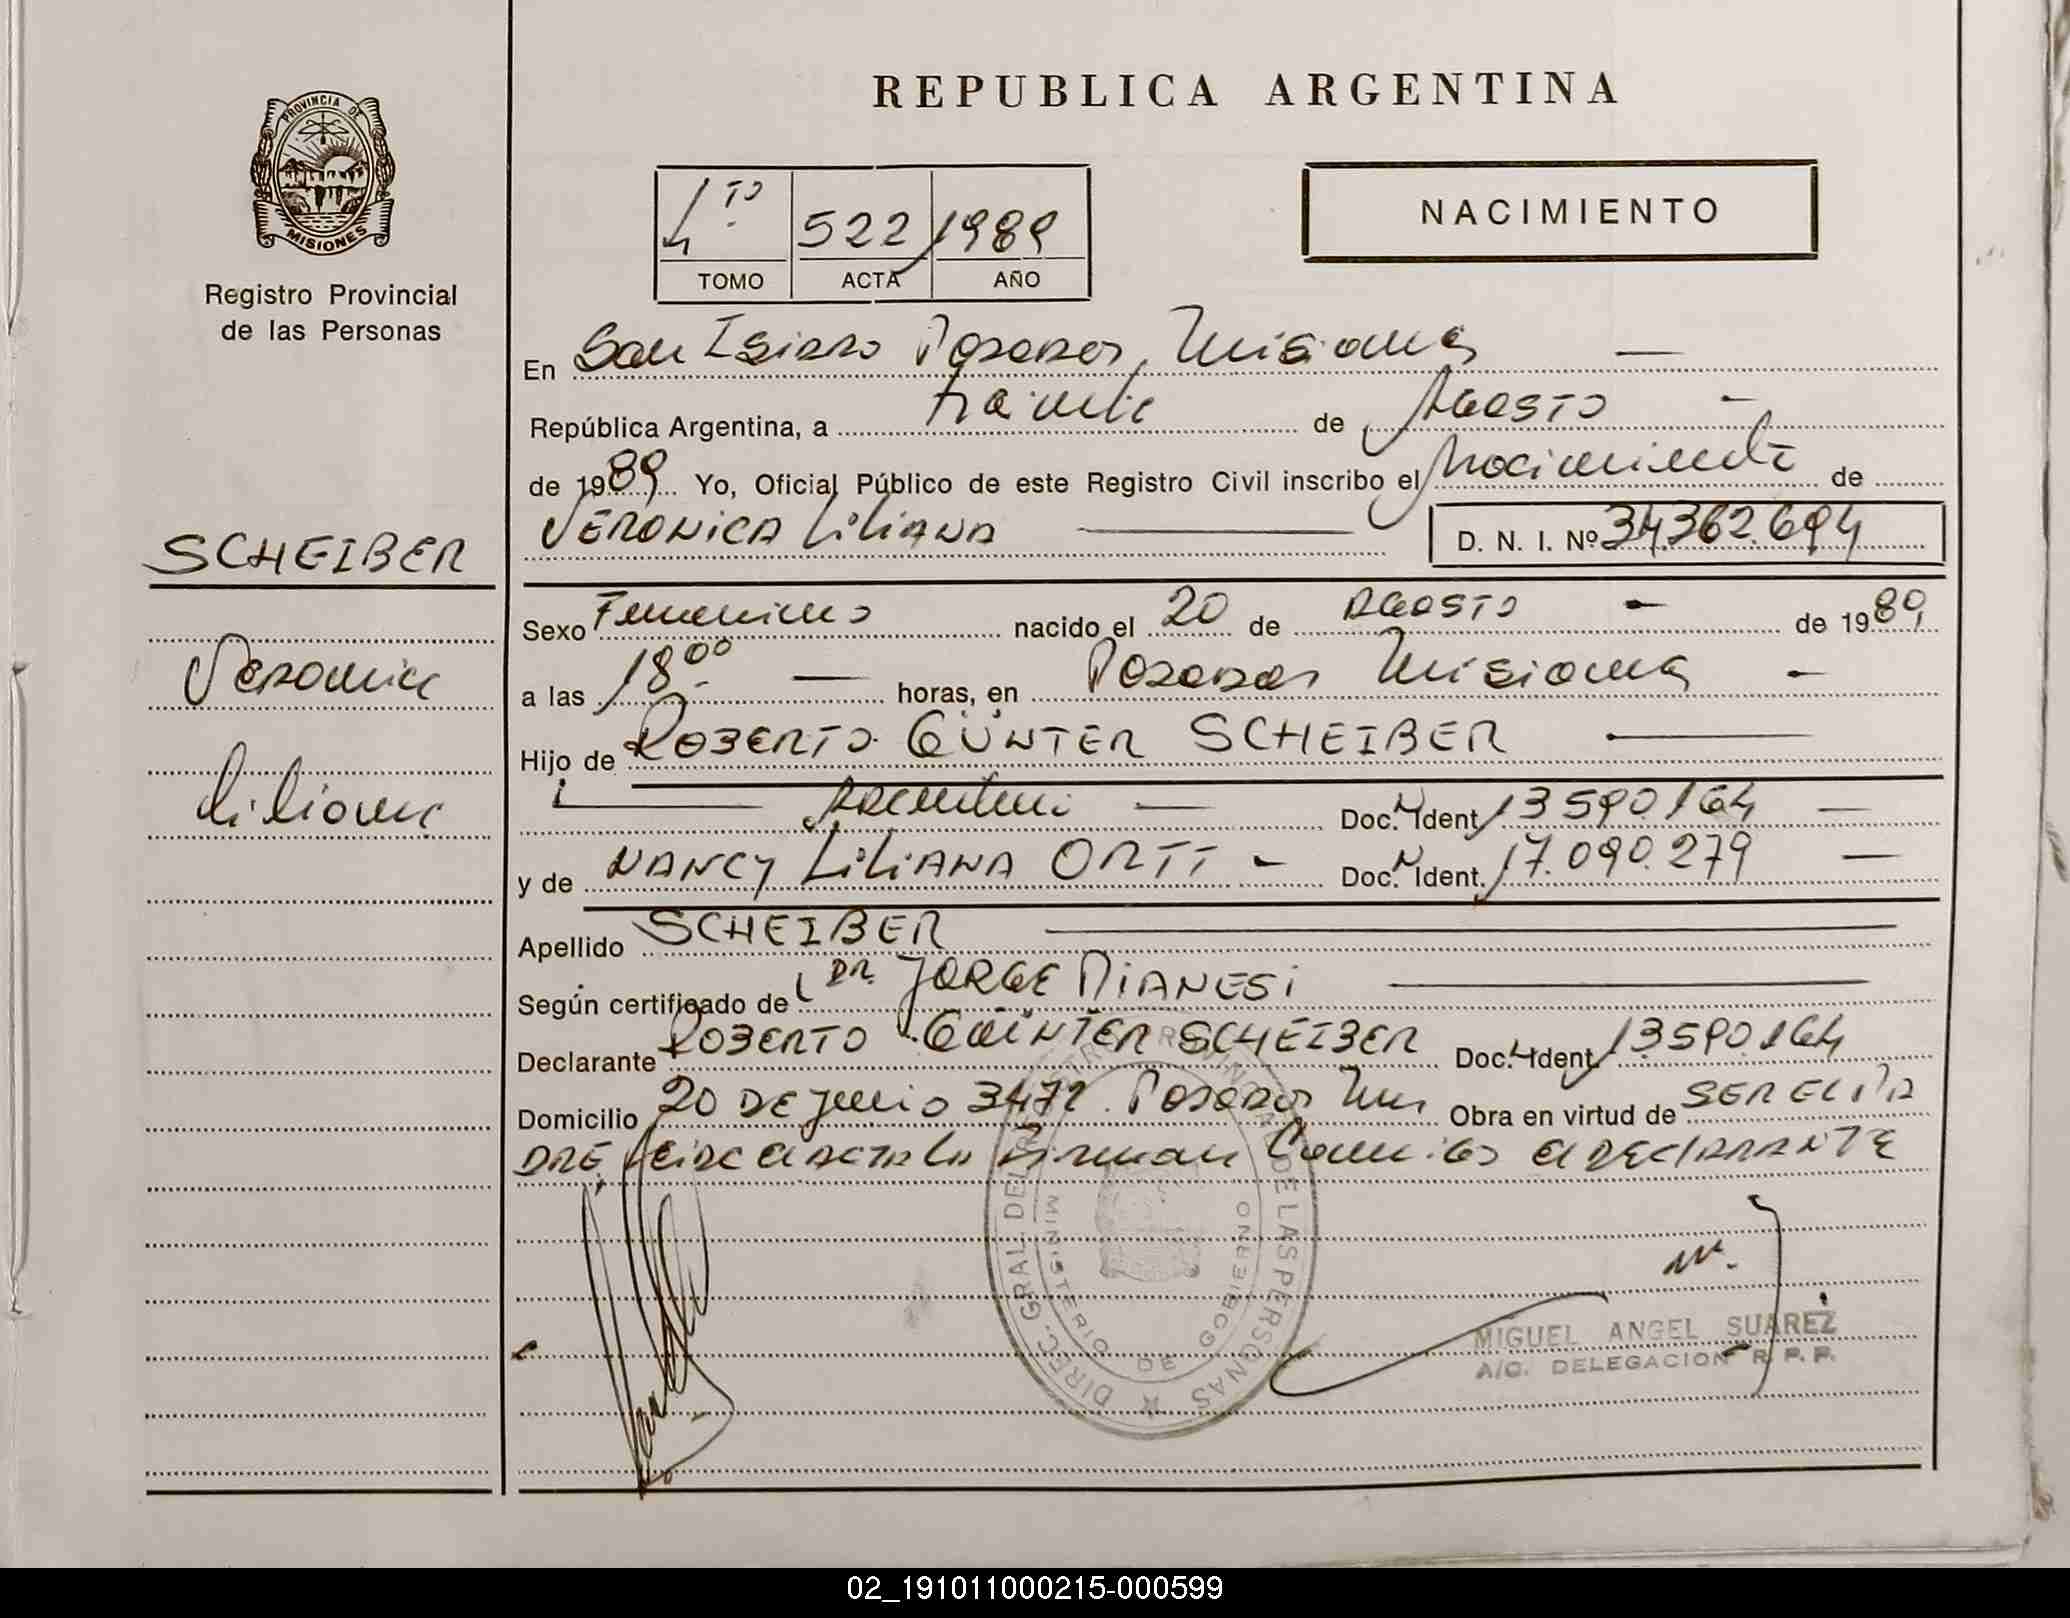 REPUBLICA ARGENTINA
PROVINCIA DE
MISIONES
Registro Provincial
de las Personas
4to 522 1989
TOMO ACTA AÑO
NACIMIENTO
En San Isidro Posadas, Misiones
República Argentina, a treinta de Agosto
de 1989 Yo, Oficial Público de este Registro Civil inscribo el Nacimiento de
VERONICA LiLiANA D. N. I. Nº 34.362.694
SCHEIBER
Veronica
Liliana
Sexo Femenino nacido el 20 de AGOSTO de 1989
a las 18 00 horas, en Posadas Misiones
Hijo de ROBERTO GÜNTER SCHEIBER
Argentino Doc. Ident. 13590164
y de NANCY LiLiANA ORTT Doc. Ident. 17.090.279
Apellido SCHEIBER
Según certificado de DR. JORGE
Declarante ROBERTO GÜINTER SCHEIBER Doc. Ident. 13590164
Domicilio 20 DE junio 3472 Posadas Mnes Obra en virtud de SER EL PA
DRE Leida el acta la Firman Conmigo el DEClARANTE
DIREC. GRAL. DEL REGISTRO PROVINCIAL DE LAS PERSONAS
MINISTERIO DE GOBIERNO
MIGUEL ANGEL SUAREZ
A/C. DELEGACION R. P. P.
02_191011000215-000599